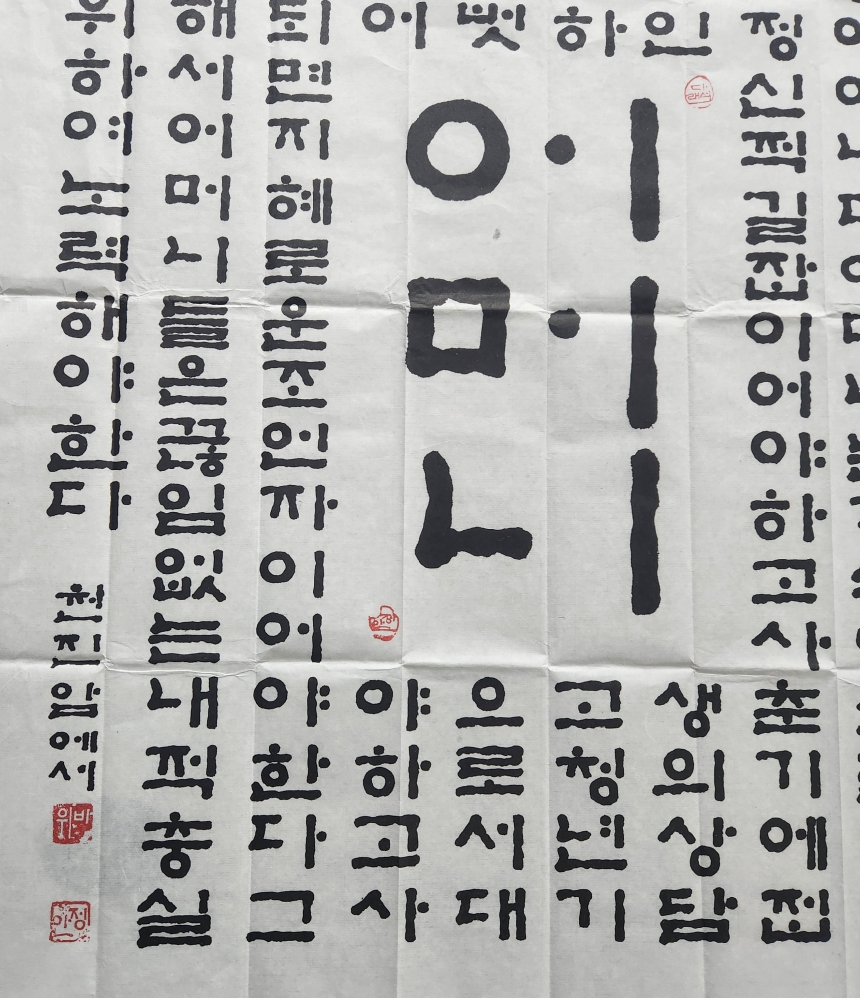 정신적길잡이어야하고사춘기에전
인
생의상담
하
고청년기
벗
으로서대
어
야하고사
어머니
되면지혜로운조언자이어야한다그
해서어머니들은끊임없는내적충실
하여노력해야한다
암에서